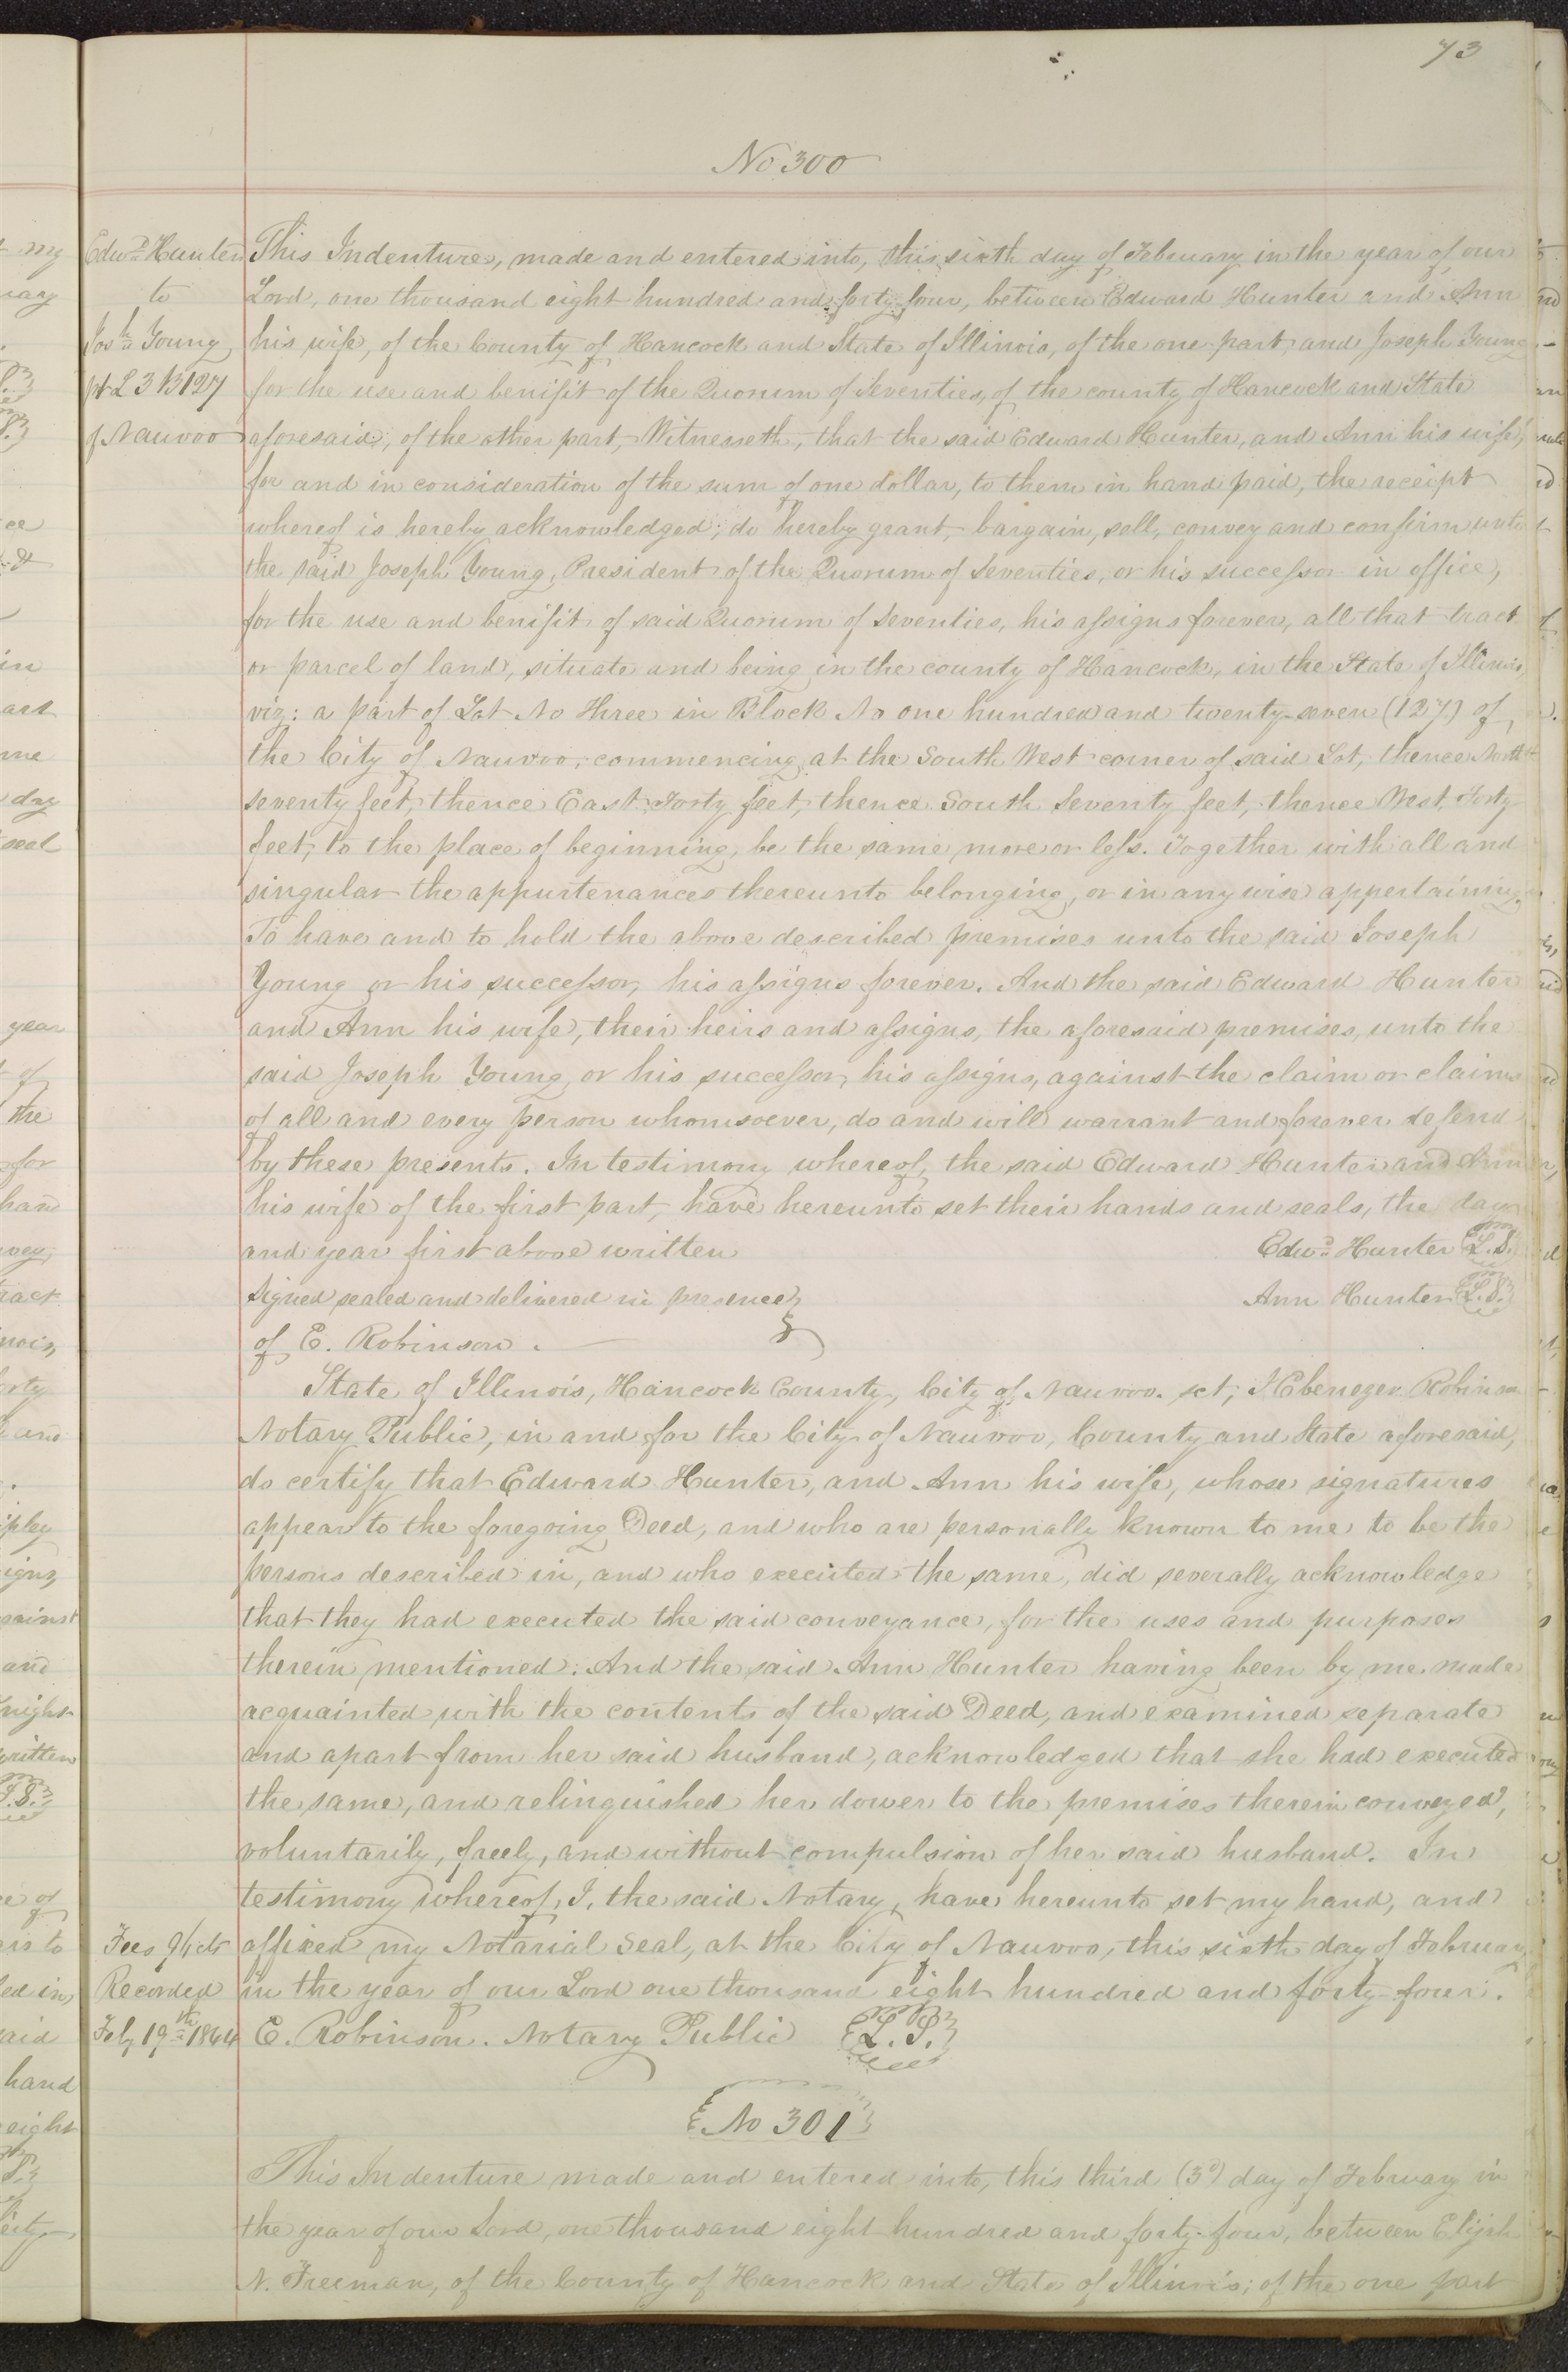 73
No 300
Edwd Hunter
to
Josh Young
pt L 3 B 127
of Nauvoo
This Indenture, made and entered into, this sixth day of February in the year of our
Lord, one thousand eight hundred and forty four, between Edward Hunter and Ann
his wife, of the County of Hancock and State of Illinois, of the one part, and Joseph Young
for the use and benifit of the Quorum of Seventies, of the county of Hancock and State
aforesaid, of the other part, Witnesseth, that the said Edward Hunter, and Ann his wife,
for and in consideration of the sum of one dollar, to them in hand paid, the receipt
whereof is hereby acknowledged; do hereby grant, bargain, sell, convey and confirm unto
the said Joseph Young, President of the Quorum of Seventies, or his successor in office,
for the use and benifit of said Quorum of Seventies, his assigns forever, all that tract
or parcel of land, situate and being in the county of Hancock, in the State of Illinois,
viz: a part of Lot No Three in Block No one hundred and twenty-seven (127) of
the City of Nauvoo, commencing at the South West corner of said Lot, thence North
seventy feet, thence East Forty feet, thence South Seventy feet, thence West Forty
feet, to the place of beginning, be the same more or less. Together with all and
singular the appurtenances thereunto belonging, or in any wise appertaining.
To have and to hold the above described premises unto the said Joseph
Young or his successor, his assigns forever. And the said Edward Hunter
and Ann his wife, their heirs and assigns, the aforesaid premises, unto the
said Joseph Young, or his successor, his assigns, against the claim or claims
of all and every person whomsoever, do and will warrant and forever defend
by these presents. In testimony whereof, the said Edward Hunter and Ann
his wife of the first part, have hereunto set their hands and seals, the day
and year first above written
Edwd Hunter L.S.
Signed sealed and delivered in presence
Ann Hunter L.S.
of E. Robinson.
State of Illinois, Hancock County, City of Nauvoo. sct; I Ebenezer Robinson
Notary Public, in and for the City of Nauvoo, County and State aforesaid,
do certify that Edward Hunter, and Ann his wife, whose signatures
appear to the foregoing Deed, and who are personally known to me to be the
persons described in, and who executed the same, did severally acknowledge
that they had executed the said conveyance, for the uses and purposes
therein mentioned. And the said Ann Hunter having been by me made
acquainted with the contents of the said Deed, and examined separate
and apart from her said husband, acknowledged that she had executed
the same, and relinquished her dower to the premises therein conveyed,
voluntarily, freely, and without compulsion of her said husband. In
testimony whereof, I, the said Notary, have hereunto set my hand, and
affixed my Notarial Seal, at the City of Nauvoo, this sixth day of February
in the year of our Lord one thousand eight hundred and forty-four.
E. Robinson. Notary Public L. S.
Recorded
Feby 19th 1844
No 301
This Indenture made and entered into, this third (3d) day of February in
the year of our Lord, one thousand eight hundred and forty-four, between Elijah
N. Freeman, of the County of Hancock and State of Illinois; of the one part